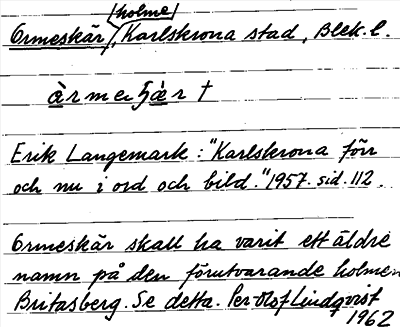 holme
Ormeskär, Karlskrona stad, Blek. l.
àrmeʃæ̀r †
Erik Langemark: "Karlskrona förr
och nu i ord och bild." 1957. sid. 112.
Ormeskär skall ha varit ett äldre
namn på den förutvarande holmen
Britasberg. Se detta. Per-Olof Lindqvist
1962